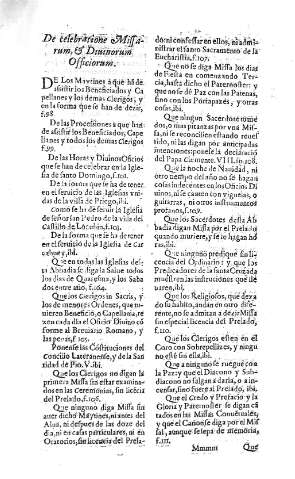 De celebratione Missa-
rum, & Diuinorum
Officiorum.
DE Los Maytines à que hā de
assistir los Beneficiados y Ca
pellanes y los demas Clerigos, y en
la forma que se han de dezir,
De las Processiones a que han
de assistir los Beneficiados, Cape
llanes y todos los demas Clerigos
f.99.
De las Horas y Diuinos Oficios
que se han de celebrar en la Igle
sia de santo Domingo, f.
De la forma que se ha de tener
en el seruicio de las Iglesias vni-
das de la villa de Priego, ibi.
Como se ha de seruir la Iglesia
de señor san Pedro de la villa del
Castillo de Locubin, f.103.
De la forma que se ha de tener
en el seruicio de la Iglesia de Car
cabuey, ibi.
Que en todas las Iglesias des-
ta Abbadia se diga la Salue todos
los dias de Quaresma, y los Saba
dos entre año, f.
Que los Clerigos in Sacris, y
los de menores Ordenes, que tu-
uieren Beneficio, o Capellania, re
zen cada dia el Oficio Diuino cō
forme al Breuiario Romano, y
las penas, f.105.
Ponense las Constituciones del
Concilio Lateranense, y de la San
tidad de Pio. V. ibi.
Que los Clerigos no digan la
primera Missa sin estar examina-
dos en las Ceremonias, sin licēcia
del Prelado, f.106.
Que ninguno diga Missa sin
auer dicho Maytines, ni antes del
Alua, ni despues de las doze del
dia, ni en casas particulares, ni en
Oratorios, sin licēcia del Prela-
do, ni confessar en ellos, ni admi-
nistrar el santo Sacramento de la
Eucharistia, f.107.
Que no se diga Missa los dias
de Fiesta en comenzando Ter-
cia, hasta dicho el Paternoster: y
que no se dè Paz con las Patenas,
sino con los Portapazes, y otras
cosas, ibi.
Que ningun Sacerdote tome
dos, o mas pitanzas por vna Mis-
sa, ni se reconcilien estando reues
tido, ni las digan por anticipadas
intenciones: ponese la declaraciō
del Papa Clemente VIII. f.108.
Que la noche de Nauidad, ni
otro tiempo del año no se hagan
cosas indecentes en los Oficios Di
uinos, ni se canten con viguelas, o
guitarras, ni otros instrumentos
profanos, f.109.
Que los Sacerdotes desta Ab-
badia digan Missa por el Prelado
quando muriere, y se le hagan hō
ras, ibi.
Que ninguno predique sin li-
cencia del Ordinario: y que los
Predicadores de la santa Cruzada
muestren las instrucciones que tra
xeren, ibi.
Que los Religiosos, que dexa-
do su habito, andan en otro dife-
rente, no se admitan a dezir Missa
sin especial licencia del Prelado,
f.
Que los Clerigos esten en el
Coro con Sobrepellizes, y ningu-
no estè sin ella, ibi.
Que a ninguno se ruegue con
la Paz: y que el Diacono y Sub-
diacono no salgan a darla, o a in-
censar, sino fuere al Prelado, ibi.
Que el Credo y Prefacio, y la
Gloria y Paternoster se digan can
tados en las Missas Conuētuales,
y que el Canon se diga por el Mis
sal, aunque se sepa de memoria,
f.111.
Mmmm Que